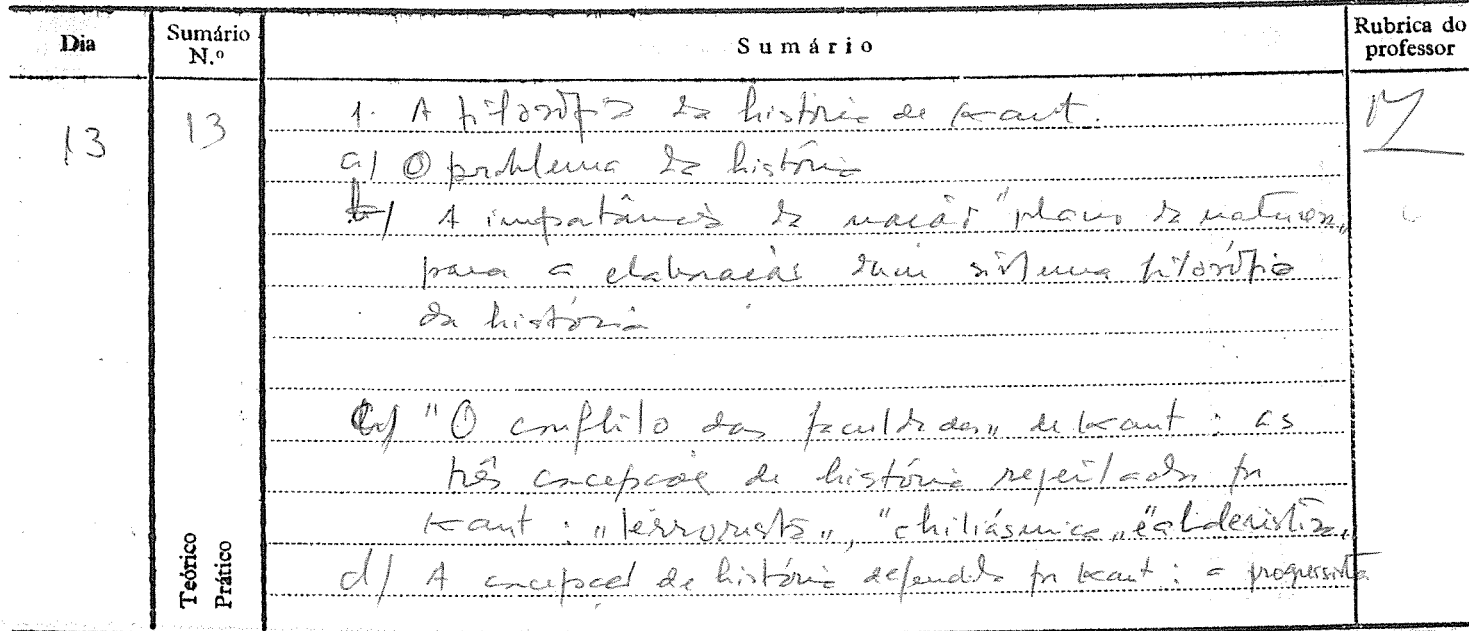 Dia
Sumário N.º
Sumário
Rubrica do professor
13
13
1. A filosofia da história de Kant.
a) O problema da história
b) A importância da noção "plano da natureza"
para a elaboração dum sistema filosófico
da história
c) "O conflito das faculdades" de Kant : as
três concepções de história rejeitadas por
Kant : "terrorista", "chiliásmica" e "abderitista"
d) A concepção de história defendida por Kant : a progressista
Teórico
Prático